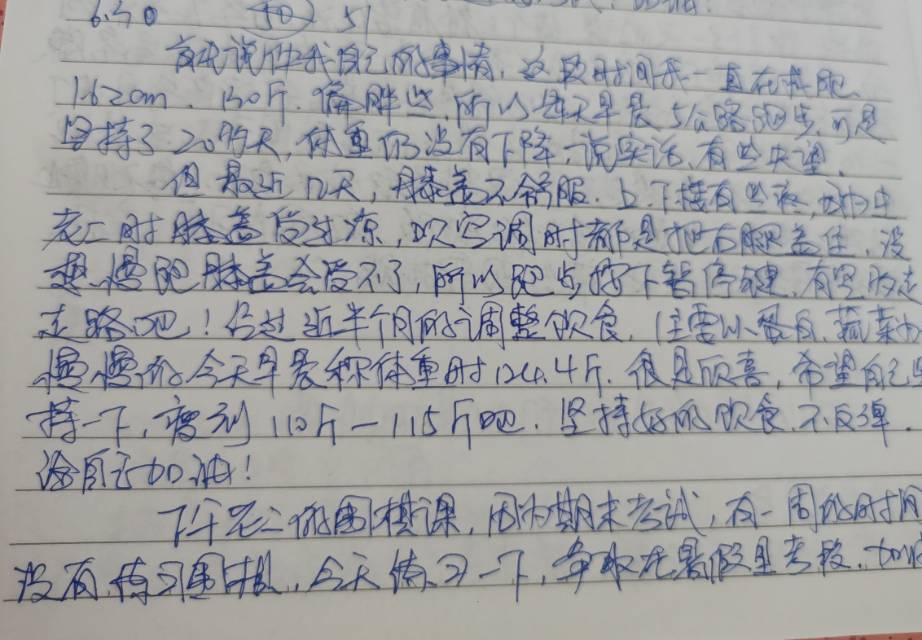 6.30 51
说件我自己的事情,这段时间我一直在慢跑,
1.62cm,130斤,偏胖些,所以每天早晨5公路跑步,可是
坚持了20多天,体重仍没有下降,说实话,有些失望。
但最近几天,膝盖不舒服,上下楼有些疼,
老二时膝盖受过凉,吹空调时都是把右腿盖住,没
想,慢跑膝盖会受不了,所以跑步按下暂停键,有空的走
走路吧!经过近半个月的调整饮食,(主要以蛋白,蔬菜
慢慢的,今天早晨称体重时124.4斤,很是欣喜,希望自己坚
持一下,瘦到110斤—115斤吧,坚持好的饮食,不反弹。
给自己加油!
下午老二的围棋课,因为期末考试,有一周的时间
没有练习围棋,今天练习一下,争取在暑假里考级,加油